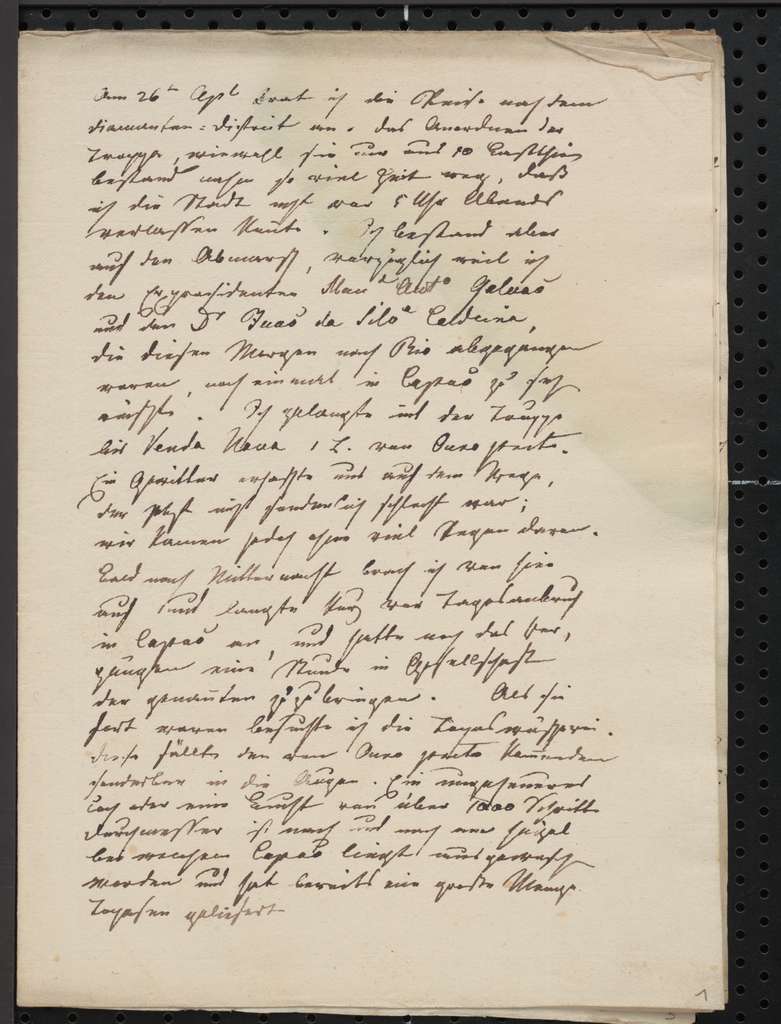 Am 26ten Apl trat ich die Reise nach dem
diamanten=District an. das Anordnen der
Truppe, wiewohl sie nur aus 10 Lastthieren
bestand nahm so viel Zeit weg, daß
ich die Stadt erst vor 5 Uhr Abends
verlassen konte. Ich bestand aber
auf den Abmarsch, vorzüglich weil ich
den Expraesidenten Manl Anto Galvaõ
und den Dr Joaõ da Silva Caldeira,
die diesen Morgen nach Rio abgegangen
waren, noch einmal in Capaõ zu sehen
wünschte. Ich gelangte mit der Truppe
bis Venda Nova 1 L. von Ouro preto.
Ein Gewitter erfasste uns auf dem Wege,
der sonst nicht sonderlich schlecht war;
wir kamen jedoch ohne viel Regen davon.
Bald nach Mitternacht brach ich von hier
auf und langte kurz vor Tagesanbruch
in Capaõ an, und hatte noch das Ver,
gnügen eine Stunde in Gesellschaft
der genanten zuzubringen. Als sie
fort waren besuchte ich die Topaswäscherei.
diese fällt den von Ouro preto komenden
sonderbar in die Augen. Ein ungeheueres
Loch oder eine Bucht von über 1000 Schritte
durchmesser ist nach und nach am Hügel
bei welchem Capaõ liegt ausgewaschen
worden und hat bereits eine große Menge
Topasen geliefert
1